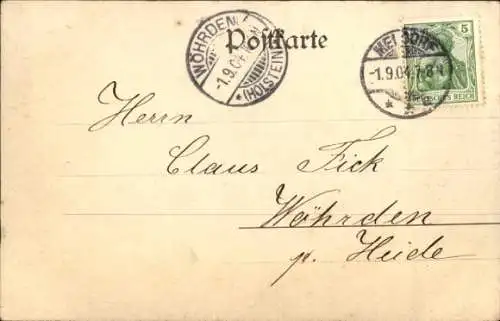 Postkarte
WÖHRDEN
-1.9.04
* (HOLSTEIN)
MELDORF
-1.9.04. 7-8
* * *
5
Herrn
Claus Fick
Wöhrden
p. Heide